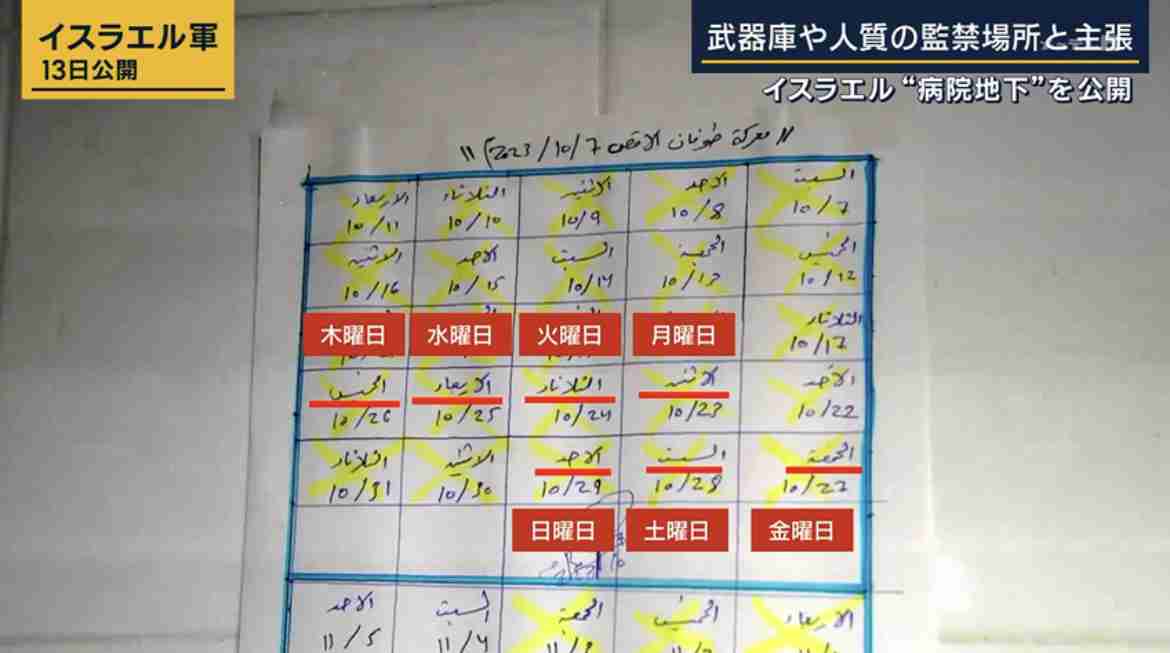 イスラエル軍
13日公開
武器庫や人質の監禁場所と主張
イスラエル “病院地下”を公開
" معركة طوفان الاقصى 2023/10/7 "
السبت الاحد الاثنين الثلاثاء الاربعاء
10/7 10/8 10/9 10/10 10/11
الخميس الجمعة السبت الاحد الاثنين
10/12 10/13 10/14 10/15 10/16
الثلاثاء
10/17
木曜日 水曜日 火曜日 月曜日
الأحد الاثنين الثلاثاء الاربعاء الخميس
10/22 10/23 10/24 10/25 10/26
الجمعة السبت الاحد الاثنين الثلاثاء
10/27 10/28 10/29 10/30 10/31
日曜日 土曜日 金曜日
الاربعاء الخميس الجمعة السبت الاحد
11/4 11/5